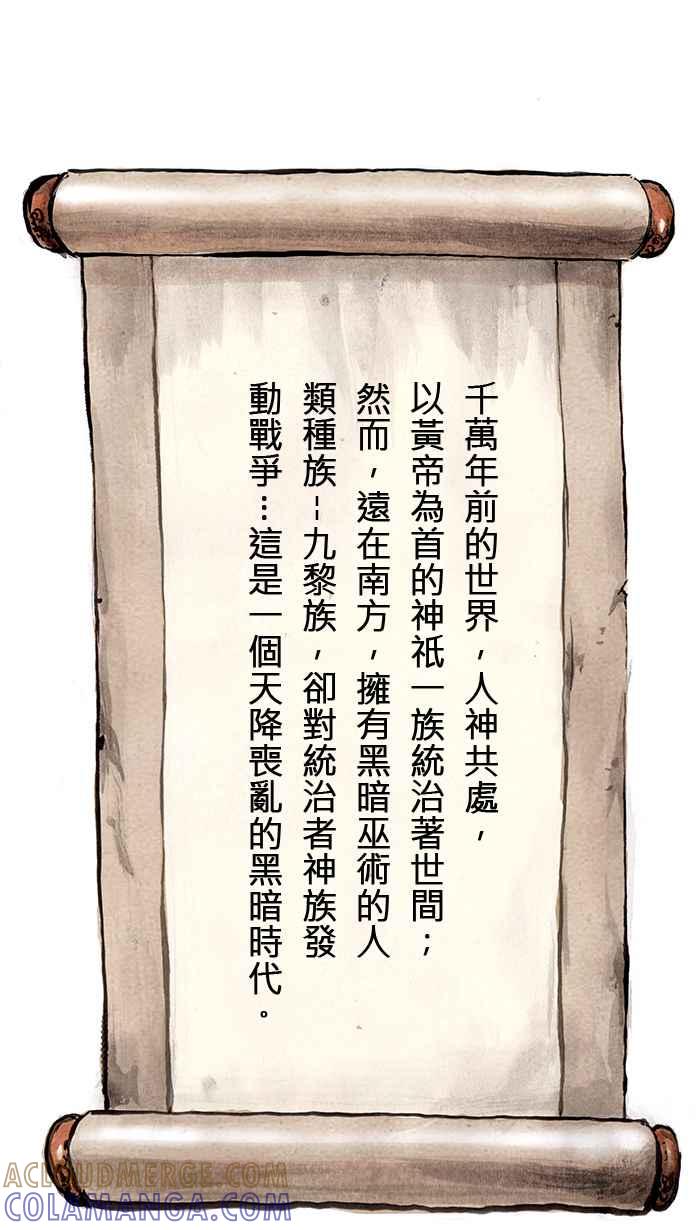 千萬年前的世界，人神共處，
以黃帝為首的神祇一族統治著世間；
然而，遠在南方，擁有黑暗巫術的人
類種族--九黎族，卻對統治者神族發
動戰爭…這是一個天降喪亂的黑暗時代。
ACLOUDMERGE.COM
COLAMANGA.COM